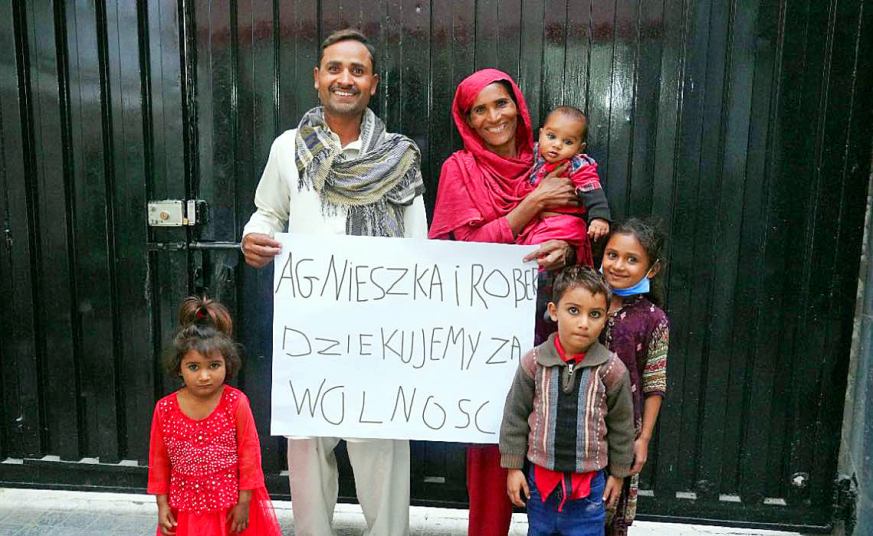 AGNIESZKA i ROBER
DZIEKUJEMY ZA
WOLNOSC